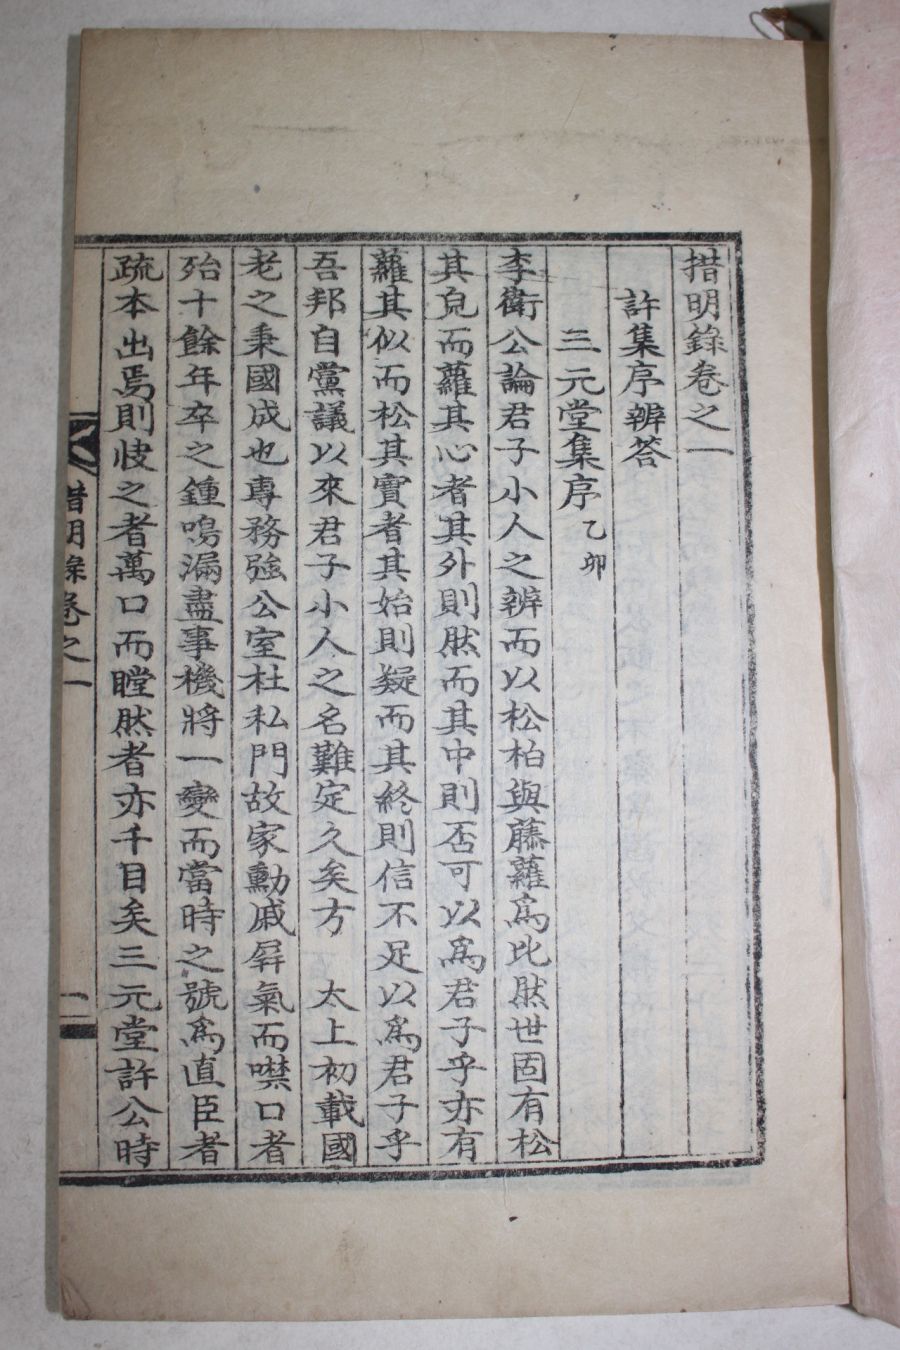 措明錄卷之一
許集序辨答
三元堂集序 乙卯
李衛公論君子小人之辨而以松柏與藤蘿爲比然世固有松
其皃而蘿其心者其外則然而其中則否可以爲君子乎亦有
蘿其似而松其實者其始則疑而其終則信不足以爲君子乎
吾邦自黨議以來君子小人之名難定久矣方 太上初載國
老之秉國成也專務強公室杜私門故家勳戚屛氣而噤口者
殆十餘年卒之鍾鳴漏盡事機將一變而當時之號爲直臣者
疏本出焉則快之者萬口而瞠然者亦千目矣三元堂許公時
措明錄卷之一
一